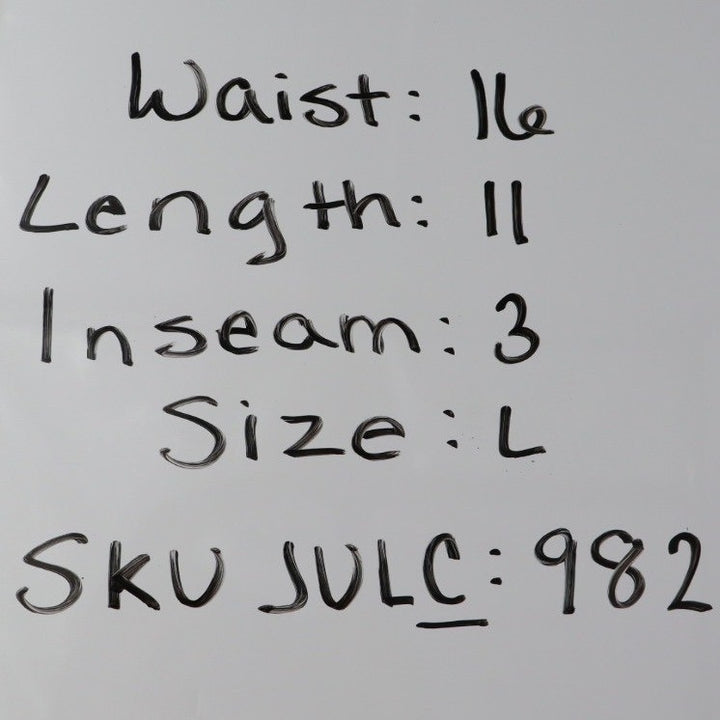 Waist: 16
Length: 11
Inseam: 3
Size: L
SKU JULC: 982